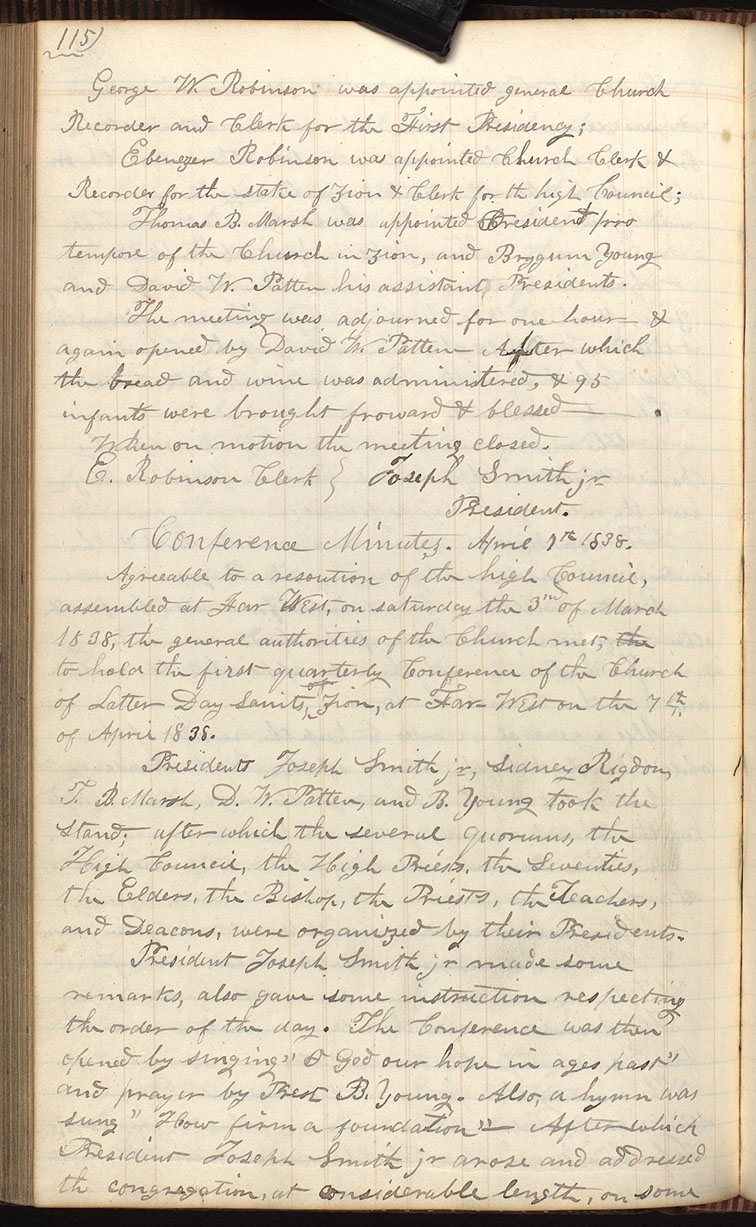 115)
George W. Robinson was appointed general Church
Recorder and Clerk for the First Presidency;
Ebenezer Robinson was appointed Church Clerk &
Recorder for the stake of Zion & Clerk for th high Council;
Thomas B. Marsh was appointed President pro
tempore of the Church in Zion, and Brygum Young
and David W. Patten his assistant, Presidents.
The meeting was adjourned for one hour &
again opened by David W. Patten— After which
the bread and wine was administered, & 95
infants were brought froward & blessed— .
When on motion the meeting closed.
E. Robinson Clerk } Joseph Smith jr
President.
Conference Minutes. April 7th 1838.
Agreeable to a resoution of the high Council,
assembled at Far West, on saturday the 3rd of March
1838, the general authorities of the Church met, the
to hold the first quarterly Conference of the Church
of Latter Day Saints, of Zion, at Far-West on the 7th.
of April 1838.
Presidents Joseph Smith jr, Sidney Rigdon,
T. B. Marsh, D. W. Patten, and B. Young took the
stand; after which the several quorums, the
High Council, the High Priests, the Seventies,
the Elders, the Bishop, the Priests, the Teachers,
and Deacons, were organized by their Presidents.
President Joseph Smith jr made some
remarks, also gave some instruction respecting
the order of the day. The Conference was then
opened by singing " O God our hope in ages past"
and prayer by Prest B. Young. Also, a hymn was
sung " How firm a foundation"— After which
President Joseph Smith jr arose and addressed
th congregation, at considerable length, on some